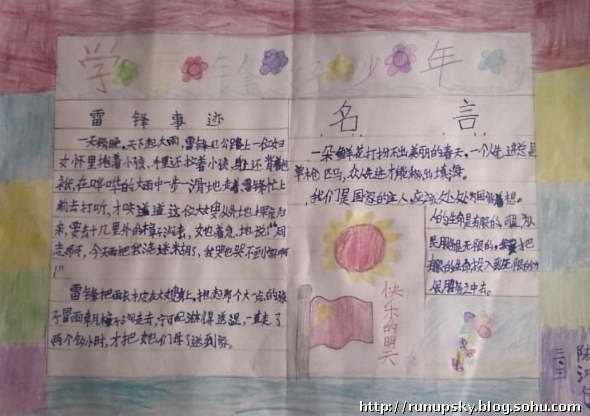 学 锋 少 年
雷 锋 事 迹
一天傍晚,天下起大雨,雷锋见公路上一位妇
女怀里抱着小孩、手里还拉着小孩,身上还背着包
袱,在哗哗的大雨中一步一滑地走着。雷锋忙上
前去打听,才知道这位大嫂从外地探亲归
来,要去十几里外的樟子沟去,她着急地说:"同
志啊,今天雨把我浇迷糊了,我哭也哭不到家啊
!"
雷锋把雨衣披在大嫂身上,抱起那个大一点的孩
子冒雨朝樟子沟走去,淋得透湿,一直走了
两个小时,才把她们母子送到家。
名 言
一朵鲜花打扮不出美丽的春天,一个人先进总是
单枪匹马,众人先进才能移山填海。
我们是国家的主人,应该处处为国家着想。
人的生命是有限的,可是,为人
民服务是无限的,我要把
有限的生命投入到无限的为
人民服务之中去。
快乐的明天
三
陈江
http://runupsky.blog.sohu.com